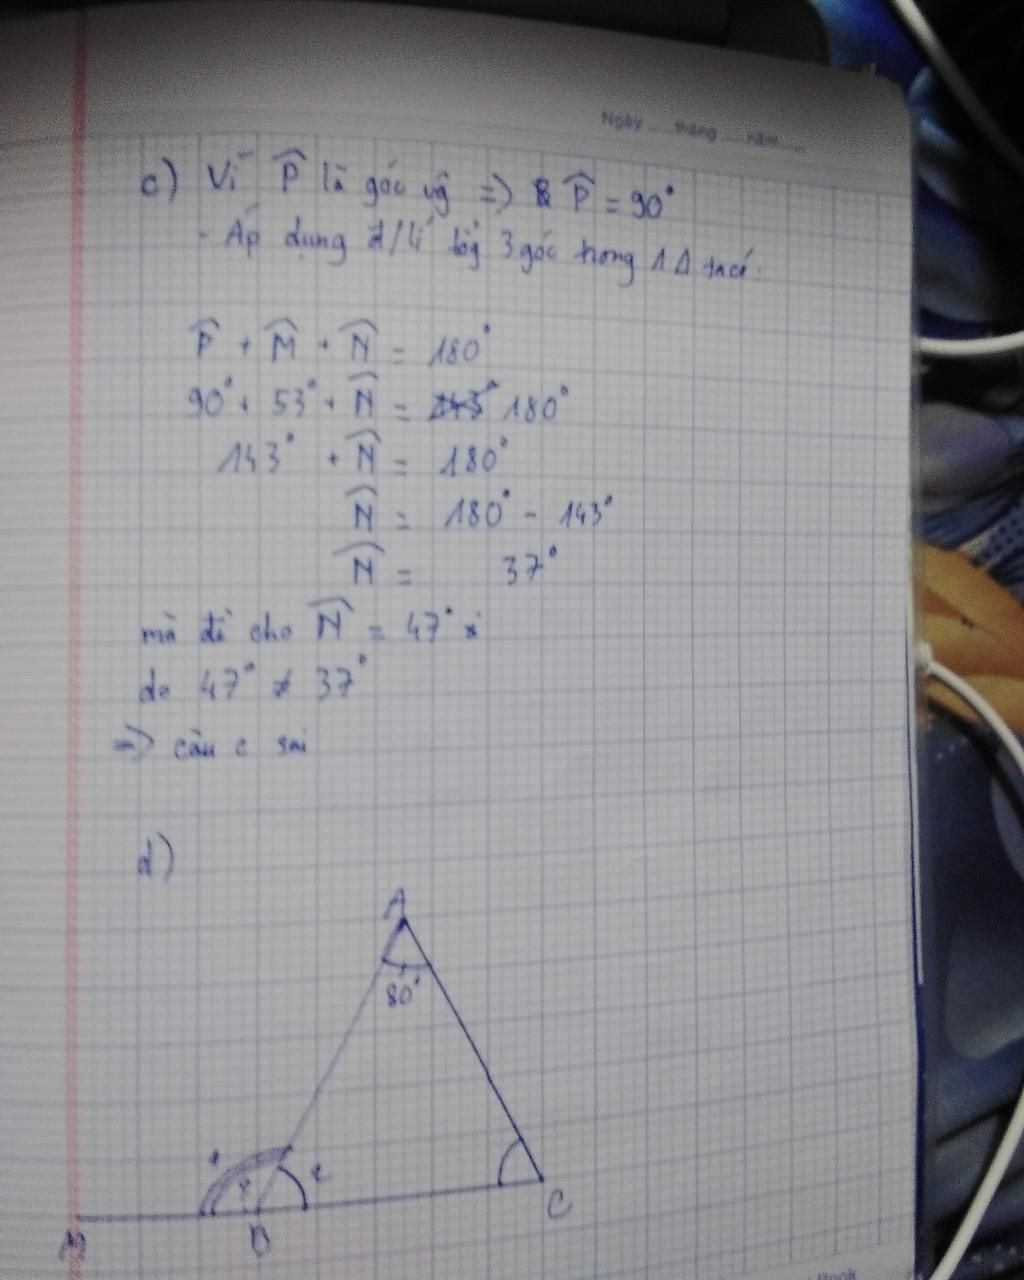 Ngày ..... tháng ..... năm .....
c) Vì P̂ là góc vg => P̂ = 90°
- Áp dụng đ/lí tổg 3 góc trong 1 Δ ta có.
P̂ + M̂ + N̂ = 180°
90° + 53° + N̂ = 180°
143° + N̂ = 180°
N̂ = 180° - 143°
N̂ = 37°
mà đề cho N̂ = 47°
do 47° ≠ 37°
=> câu c sai
d)
A
80°
M B C